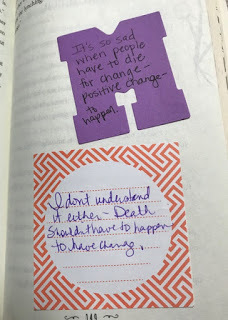 It's so sad
when people
have to die
for change -
positive change -
to
happen.
I don't understand
it either - Death
shouldn't have to happen
to have change.